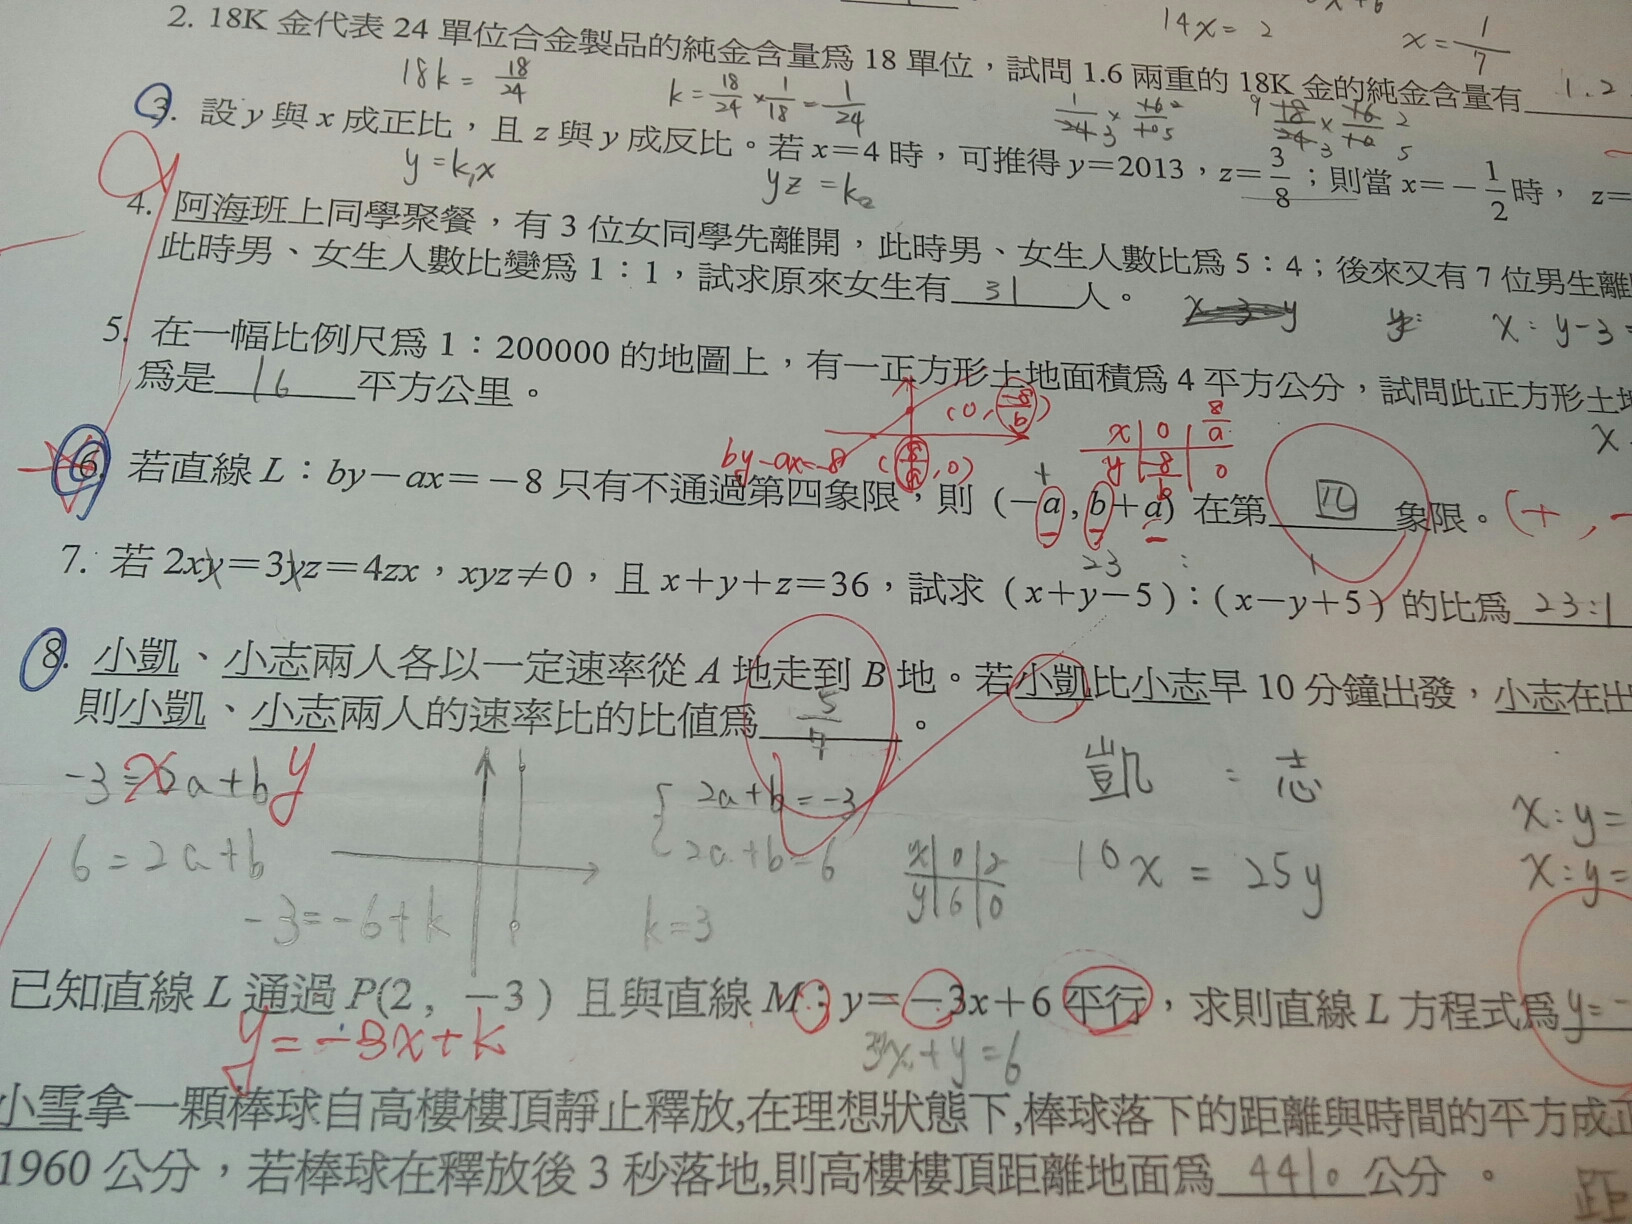 2. 18K 金代表 24 單位合金製品的純金含量爲 18 單位，試問 1.6 兩重的 18K 金的純金含量有 1.2
14x = 2
x = 1/7
18k = 18/24
k = 18/24 × 1/18 = 1/24
3. 設 y 與 x 成正比，且 z 與 y 成反比。若 x＝4 時，可推得 y＝2013，z＝3/8；則當 x＝－1/2 時， z＝
y = k₁x
yz = k₂
4. 阿海班上同學聚餐，有 3 位女同學先離開，此時男、女生人數比爲 5：4；後來又有 7 位男生離
此時男、女生人數比變爲 1：1，試求原來女生有 31 人。
x : y-3 =
5. 在一幅比例尺爲 1：200000 的地圖上，有一正方形土地面積爲 4 平方公分，試問此正方形土地
爲是 16 平方公里。
(0, -8/b)
x 0 8/a
y -8/b 0
by-ax=-8
(8/a, 0)
6. 若直線 L：by－ax＝－8 只有不通過第四象限，則（－a , b＋a）在第 四 象限。(+ , -
23 : 1
7. 若 2xy＝3yz＝4zx，xyz≠0，且 x＋y＋z＝36，試求（x＋y－5）：（x－y＋5）的比爲 23:1
8. 小凱、小志兩人各以一定速率從 A 地走到 B 地。若小凱比小志早 10 分鐘出發，小志在出
則小凱、小志兩人的速率比的比值爲 5/7 。
-3 = 2a+b
x y
{ 2a+b = -3
凱 : 志
x : y =
6 = 2a+b
2a+b = 6
x 0 2
y 6 0
10x = 25y
x : y =
-3 = -6+k
k = 3
已知直線 L 通過 P(2 , －3 ) 且與直線 M：y＝－3x＋6 平行，求則直線 L 方程式爲 y=-
y = -3x+k
3x+y = 6
小雪拿一顆棒球自高樓樓頂靜止釋放,在理想狀態下,棒球落下的距離與時間的平方成正
1960 公分，若棒球在釋放後 3 秒落地,則高樓樓頂距離地面爲 4410 公分 。
距